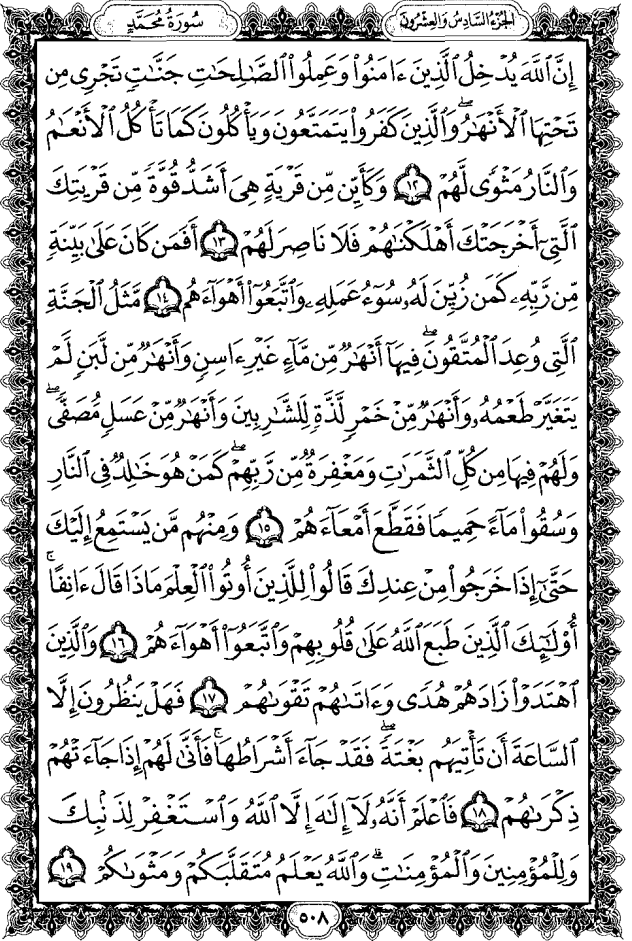 الجُزْءُ السَّادِسُ وَالعِشْرُونَ
سُورَةُ مُحَمَّدٍ
إِنَّ ٱللَّهَ يُدْخِلُ ٱلَّذِينَ ءَامَنُوا۟ وَعَمِلُوا۟ ٱلصَّـٰلِحَـٰتِ جَنَّـٰتٍ تَجْرِى مِن
تَحْتِهَا ٱلْأَنْهَـٰرُ ۖ وَٱلَّذِينَ كَفَرُوا۟ يَتَمَتَّعُونَ وَيَأْكُلُونَ كَمَا تَأْكُلُ ٱلْأَنْعَـٰمُ
وَٱلنَّارُ مَثْوًى لَّهُمْ ١٢ وَكَأَيِّن مِّن قَرْيَةٍ هِىَ أَشَدُّ قُوَّةً مِّن قَرْيَتِكَ
ٱلَّتِىٓ أَخْرَجَتْكَ أَهْلَكْنَـٰهُمْ فَلَا نَاصِرَ لَهُمْ ١٣ أَفَمَن كَانَ عَلَىٰ بَيِّنَةٍ
مِّن رَّبِّهِۦ كَمَن زُيِّنَ لَهُۥ سُوٓءُ عَمَلِهِۦ وَٱتَّبَعُوٓا۟ أَهْوَآءَهُم ١٤ مَّثَلُ ٱلْجَنَّةِ
ٱلَّتِى وُعِدَ ٱلْمُتَّقُونَ ۖ فِيهَآ أَنْهَـٰرٌ مِّن مَّآءٍ غَيْرِ ءَاسِنٍ وَأَنْهَـٰرٌ مِّن لَّبَنٍ لَّمْ
يَتَغَيَّرْ طَعْمُهُۥ وَأَنْهَـٰرٌ مِّنْ خَمْرٍ لَّذَّةٍ لِّلشَّـٰرِبِينَ وَأَنْهَـٰرٌ مِّنْ عَسَلٍ مُّصَفًّى ۖ
وَلَهُمْ فِيهَا مِن كُلِّ ٱلثَّمَرَٰتِ وَمَغْفِرَةٌ مِّن رَّبِّهِمْ ۖ كَمَنْ هُوَ خَـٰلِدٌ فِى ٱلنَّارِ
وَسُقُوا۟ مَآءً حَمِيمًا فَقَطَّعَ أَمْعَآءَهُمْ ١٥ وَمِنْهُم مَّن يَسْتَمِعُ إِلَيْكَ
حَتَّىٰٓ إِذَا خَرَجُوا۟ مِنْ عِندِكَ قَالُوا۟ لِلَّذِينَ أُوتُوا۟ ٱلْعِلْمَ مَاذَا قَالَ ءَانِفًا ۚ
أُو۟لَـٰٓئِكَ ٱلَّذِينَ طَبَعَ ٱللَّهُ عَلَىٰ قُلُوبِهِمْ وَٱتَّبَعُوٓا۟ أَهْوَآءَهُمْ ١٦ وَٱلَّذِينَ
ٱهْتَدَوْا۟ زَادَهُمْ هُدًى وَءَاتَىٰهُمْ تَقْوَىٰهُمْ ١٧ فَهَلْ يَنظُرُونَ إِلَّا
ٱلسَّاعَةَ أَن تَأْتِيَهُم بَغْتَةً ۖ فَقَدْ جَآءَ أَشْرَاطُهَا ۚ فَأَنَّىٰ لَهُمْ إِذَا جَآءَتْهُمْ
ذِكْرَىٰهُمْ ١٨ فَٱعْلَمْ أَنَّهُۥ لَآ إِلَـٰهَ إِلَّا ٱللَّهُ وَٱسْتَغْفِرْ لِذَنۢبِكَ
وَلِلْمُؤْمِنِينَ وَٱلْمُؤْمِنَـٰتِ ۗ وَٱللَّهُ يَعْلَمُ مُتَقَلَّبَكُمْ وَمَثْوَىٰكُمْ ١٩
٥٠٨